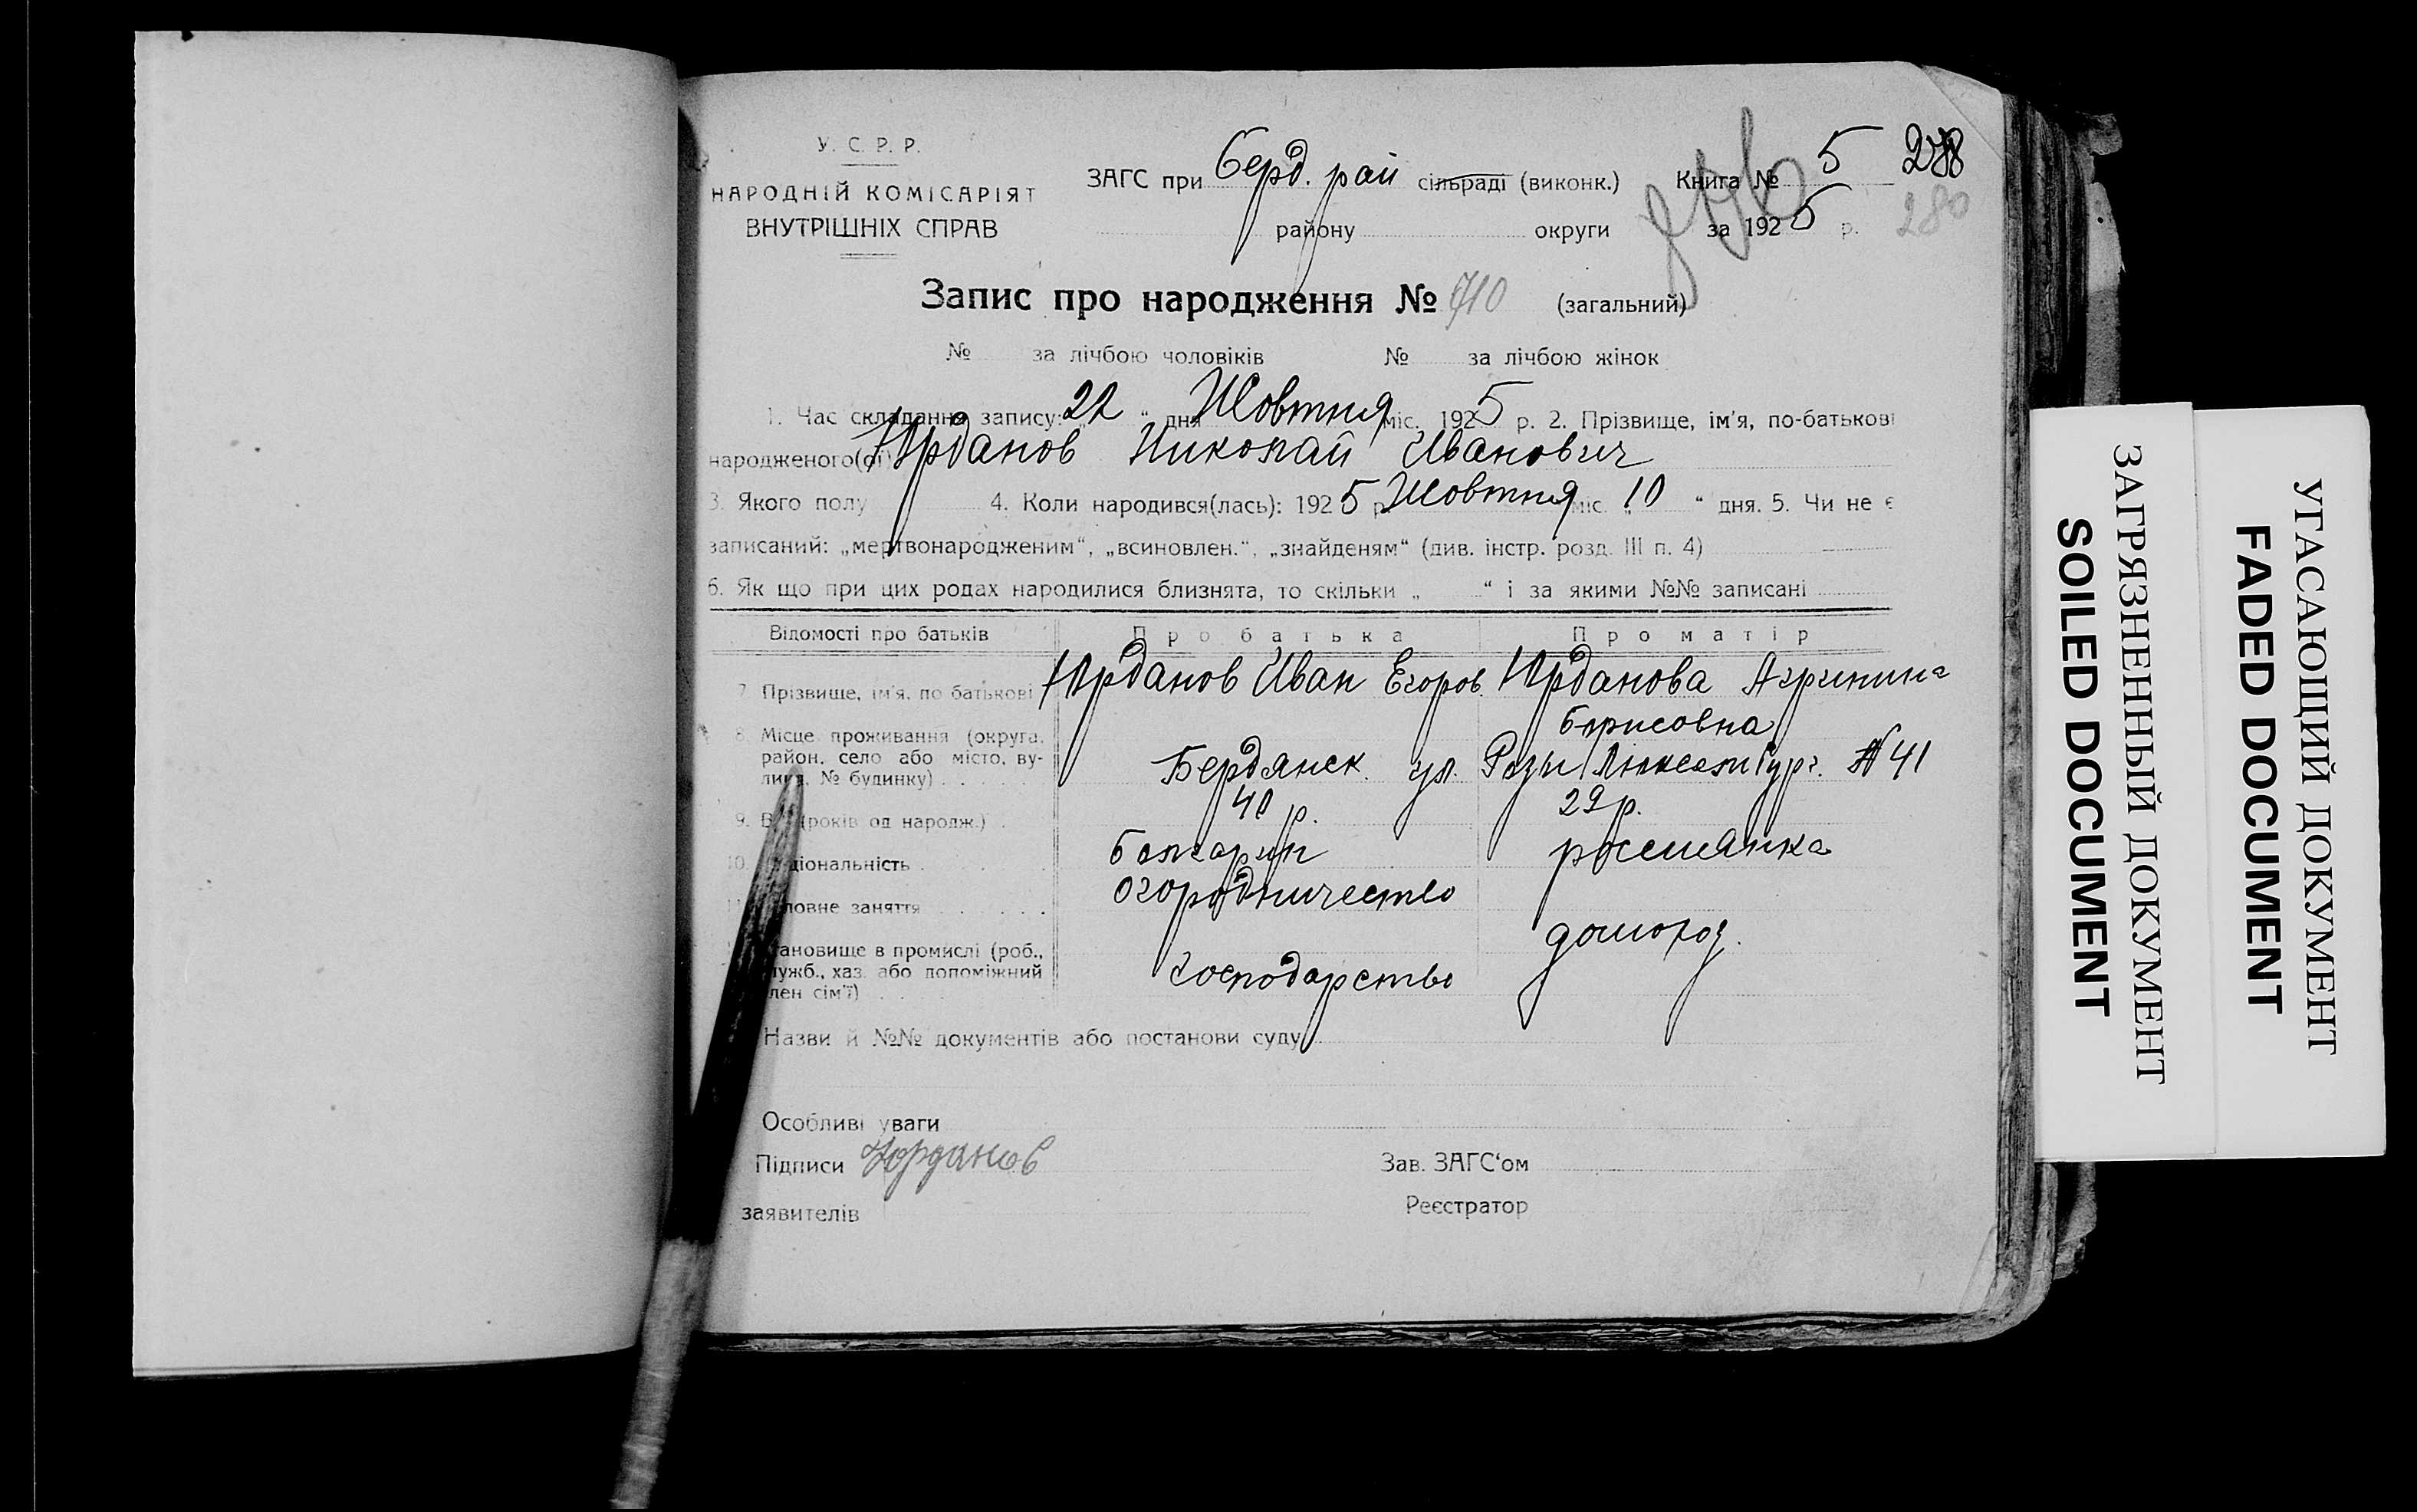 У. С. Р. Р.
НАРОДНІЙ КОМІСАРІЯТ
ВНУТРІШНІХ СПРАВ
ЗАГС при Берд. рай сільраді (виконк.)
району округи
Книга № 5 288
за 1925 р. 280
Запис про народження № 710 (загальний)
№ за лічбою чоловіків № за лічбою жінок
1. Час складання запису: „22“ дня Жовтня міс. 1925 р. 2. Прізвище, ім'я, по-батькові
народженого(ої) Юрданов Николай Иванович
3. Якого полу 4. Коли народився(лась): 1925 р. Жовтня міс. „10“ дня. 5. Чи не є
записаний: „мертвонародженим“, „всиновлен.“, „знайденям“ (див. інстр. розд. III п. 4)
6. Як що при цих родах народилися близнята, то скільки „ “ і за якими №№ записані
Відомості про батьків Про батька Про матір
7. Прізвище, ім'я, по батькові Юрданов Иван Егоров. Юрданова
Борисовна
8. Місце проживання (округа,
район, село або місто, ву-
лиця, № будинку) Бердянск ул. Розы Люксембург. № 41
9. (років од народж.) 40 р. 29 р.
10. ціональність болгарин россиянка
ловне заняття огородничество
тановище в промислі (роб., домохоз.
лужб., хаз. або допоміжний господарство
лен сім'ї)
Назви й №№ документів або постанови суду
Особливі уваги
Підписи Юрданов Зав. ЗАГС'ом
заявителів Реєстратор
ЗАГРЯЗНЕННЫЙ ДОКУМЕНТ
SOILED DOCUMENT
УГАСАЮЩИЙ ДОКУМЕНТ
FADED DOCUMENT